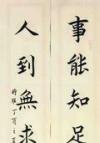 事能知足
人到無求